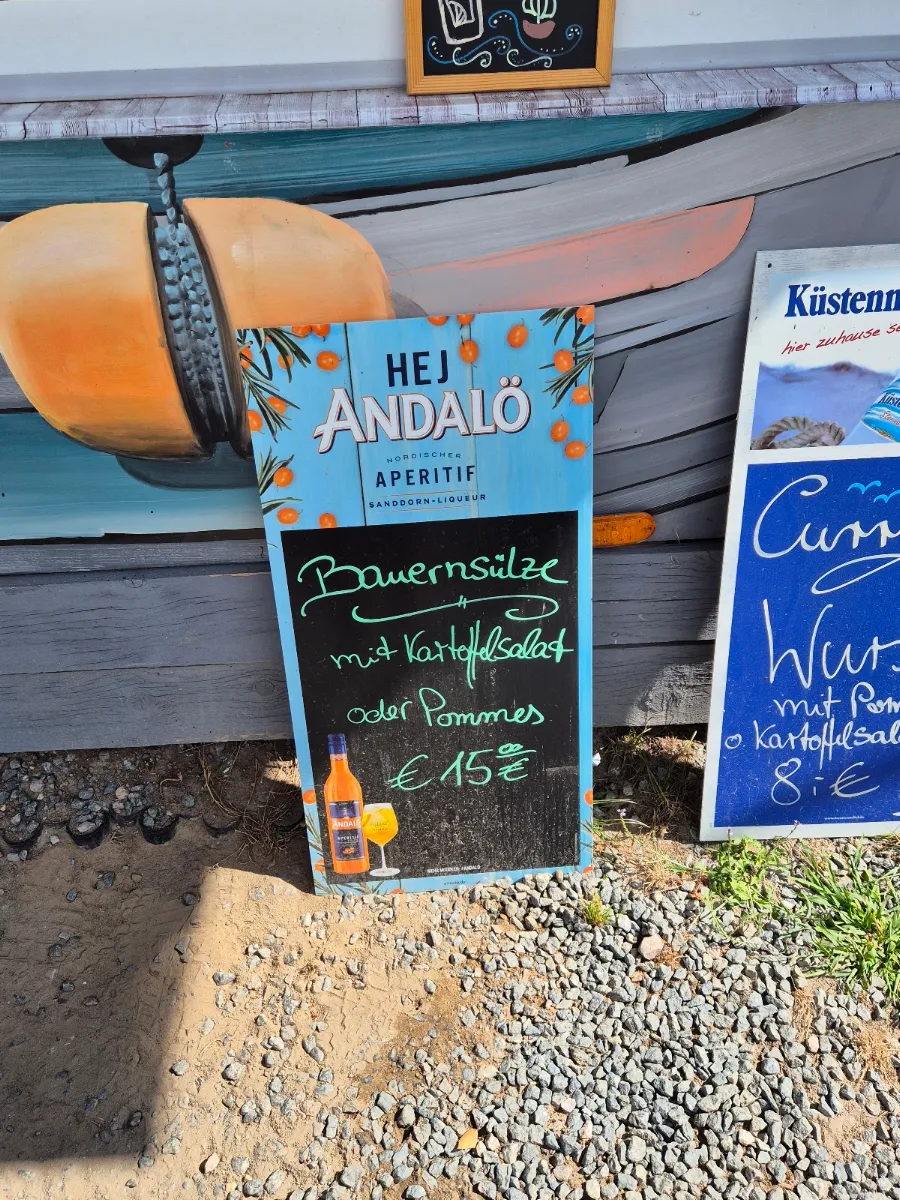 HEJ
ANDALÖ
NORDISCHER
APERITIF
SANDDORN-LIQUEUR
Bauernsülze
mit Kartoffelsalat
oder Pommes
€ 15 00 €
ANDALÖ
APERITIF
Küstenn
hier zuhause se
Curr
Wurs
mit Pom
o Kartoffelsal
8,- €